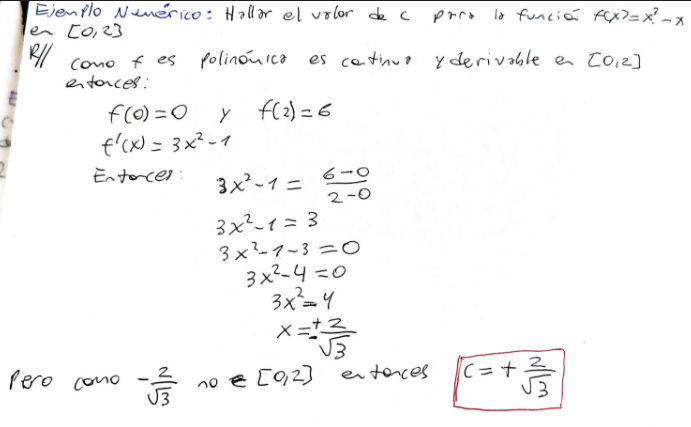 Ejemplo Numérico: Hallar el valor de c para la función f(x)=x³-x
en [0,2]
R// como f es polinómica es continua y derivable en [0,2]
entonces:
f(0)=0 y f(2)=6
f'(x)=3x²-1
Entonces: 3x²-1 = (6-0)/(2-0)
3x²-1=3
3x²-1-3=0
3x²-4=0
3x²=4
x=±2/√3
Pero como -2/√3 no ∈ [0,2] entonces c=+2/√3